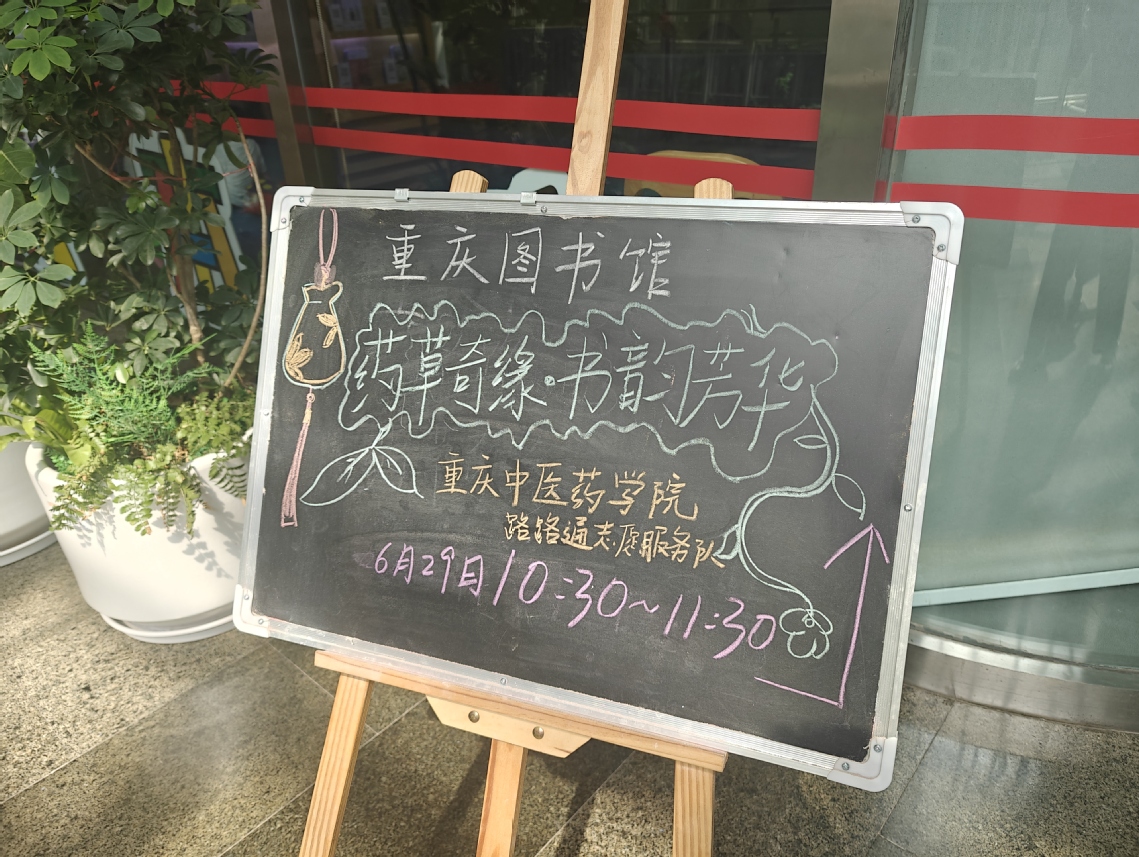 重庆图书馆
药草奇缘·书韵芳华
重庆中医药学院
路路通志愿服务队
6月29日10:30~11:30